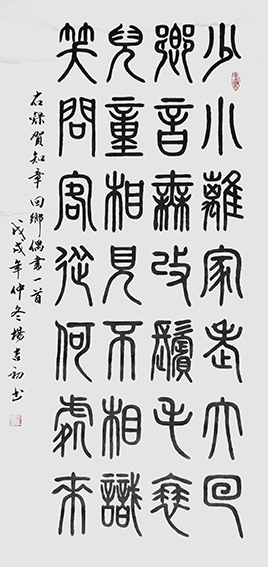 少小離家老大回
鄉音無改鬢毛衰
兒童相見不相識
笑問客從何處來
右録賀知章回鄉偶書一首
戊戌年仲冬楊吉初书